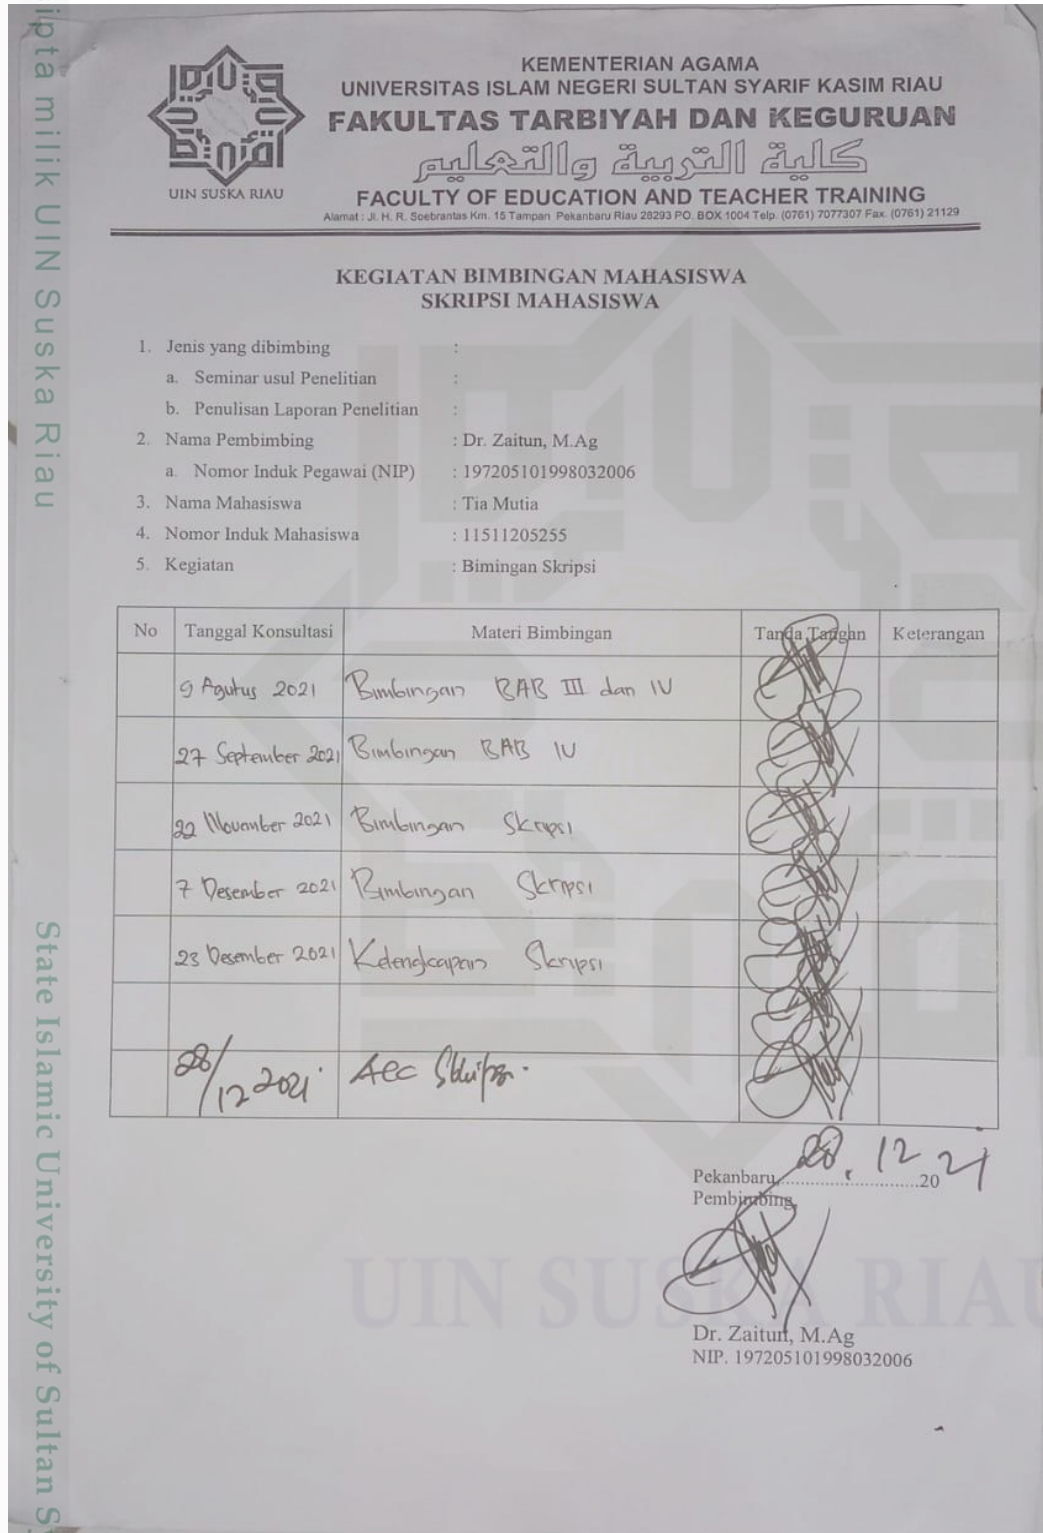 ipta milik UIN Suska Riau
State Islamic University of Sultan S
UIN SUSKA RIAU
KEMENTERIAN AGAMA
UNIVERSITAS ISLAM NEGERI SULTAN SYARIF KASIM RIAU
FAKULTAS TARBIYAH DAN KEGURUAN
كلية التربية والتعليم
FACULTY OF EDUCATION AND TEACHER TRAINING
Alamat : Jl. H. R. Soebrantas Km. 15 Tampan Pekanbaru Riau 28293 PO. BOX 1004 Telp. (0761) 7077307 Fax. (0761) 21129
KEGIATAN BIMBINGAN MAHASISWA
SKRIPSI MAHASISWA
1. Jenis yang dibimbing :
a. Seminar usul Penelitian :
b. Penulisan Laporan Penelitian :
2. Nama Pembimbing : Dr. Zaitun, M.Ag
a. Nomor Induk Pegawai (NIP) : 197205101998032006
3. Nama Mahasiswa : Tia Mutia
4. Nomor Induk Mahasiswa : 11511205255
5. Kegiatan : Bimingan Skripsi
No Tanggal Konsultasi Materi Bimbingan Tanda Tangan Keterangan
9 Agutus 2021 Bimbingan BAB III dan IV
27 September 2021 Bimbingan BAB IV
22 November 2021 Bimbingan Skripsi
7 Desember 2021 Bimbingan Skripsi
23 Desember 2021 Kelengkapan Skripsi
28/12 2021 Acc Skripsi.
Pekanbaru, 28. 12 2021
Pembimbing,
UIN SUSKA RIAU
Dr. Zaitun, M.Ag
NIP. 197205101998032006